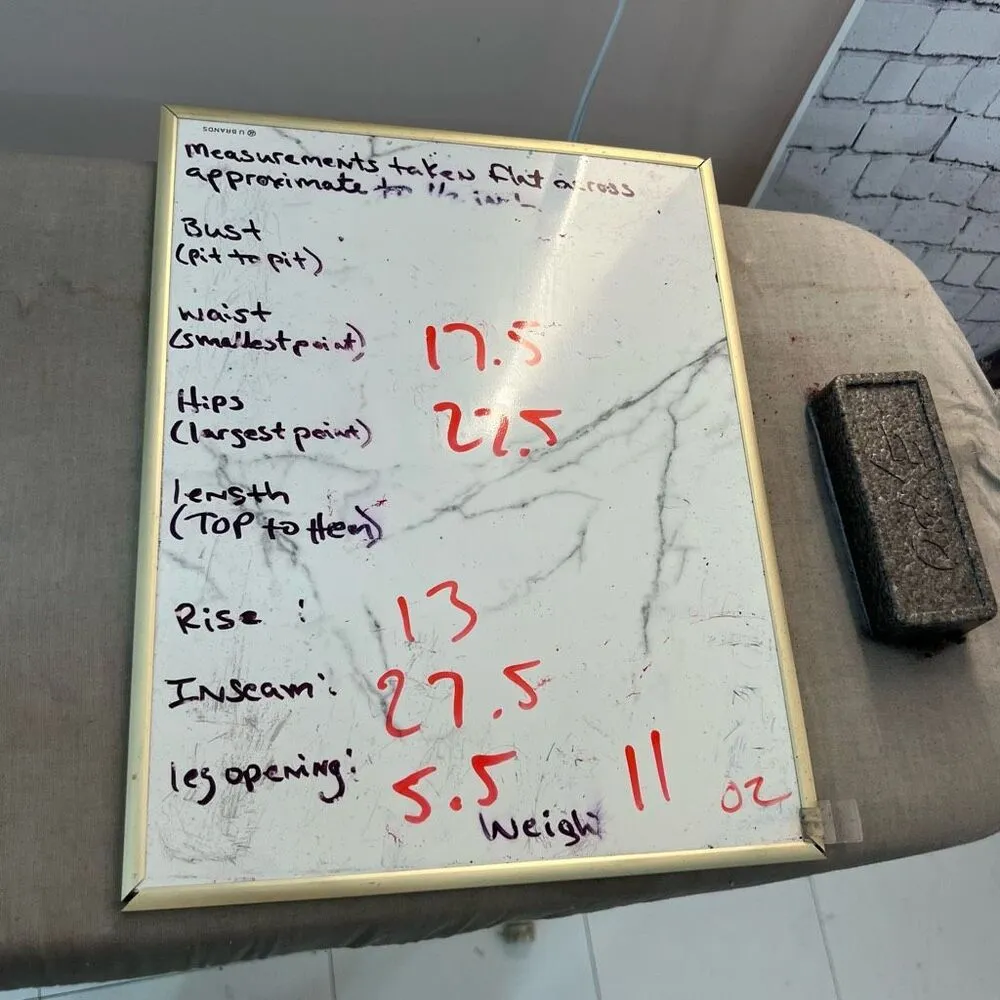 U BRANDS
Measurements taken flat across
approximate to
Bust
(pit to pit)
waist
(smallest point) 17.5
Hips
(largest point) 27.5
length
(TOP to Hem)
Rise : 13
Inseam: 27.5
leg opening: 5.5 11 oz
Weigh